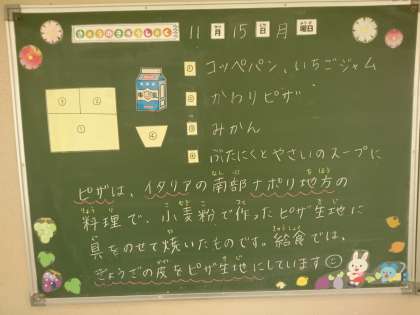 きょうのきゅうしょく
11月15日月曜日
① コッペパン、いちごジャム
② かわりピザ
③ みかん
④ ぶたにくとやさいのスープに
③ ②
①
④
ピザは、イタリアの南部ナポリ地方の
料理で、小麦粉で作ったピザ生地に
具をのせて焼いたものです。給食では、
ぎょうざの皮をピザ生地にしています☺